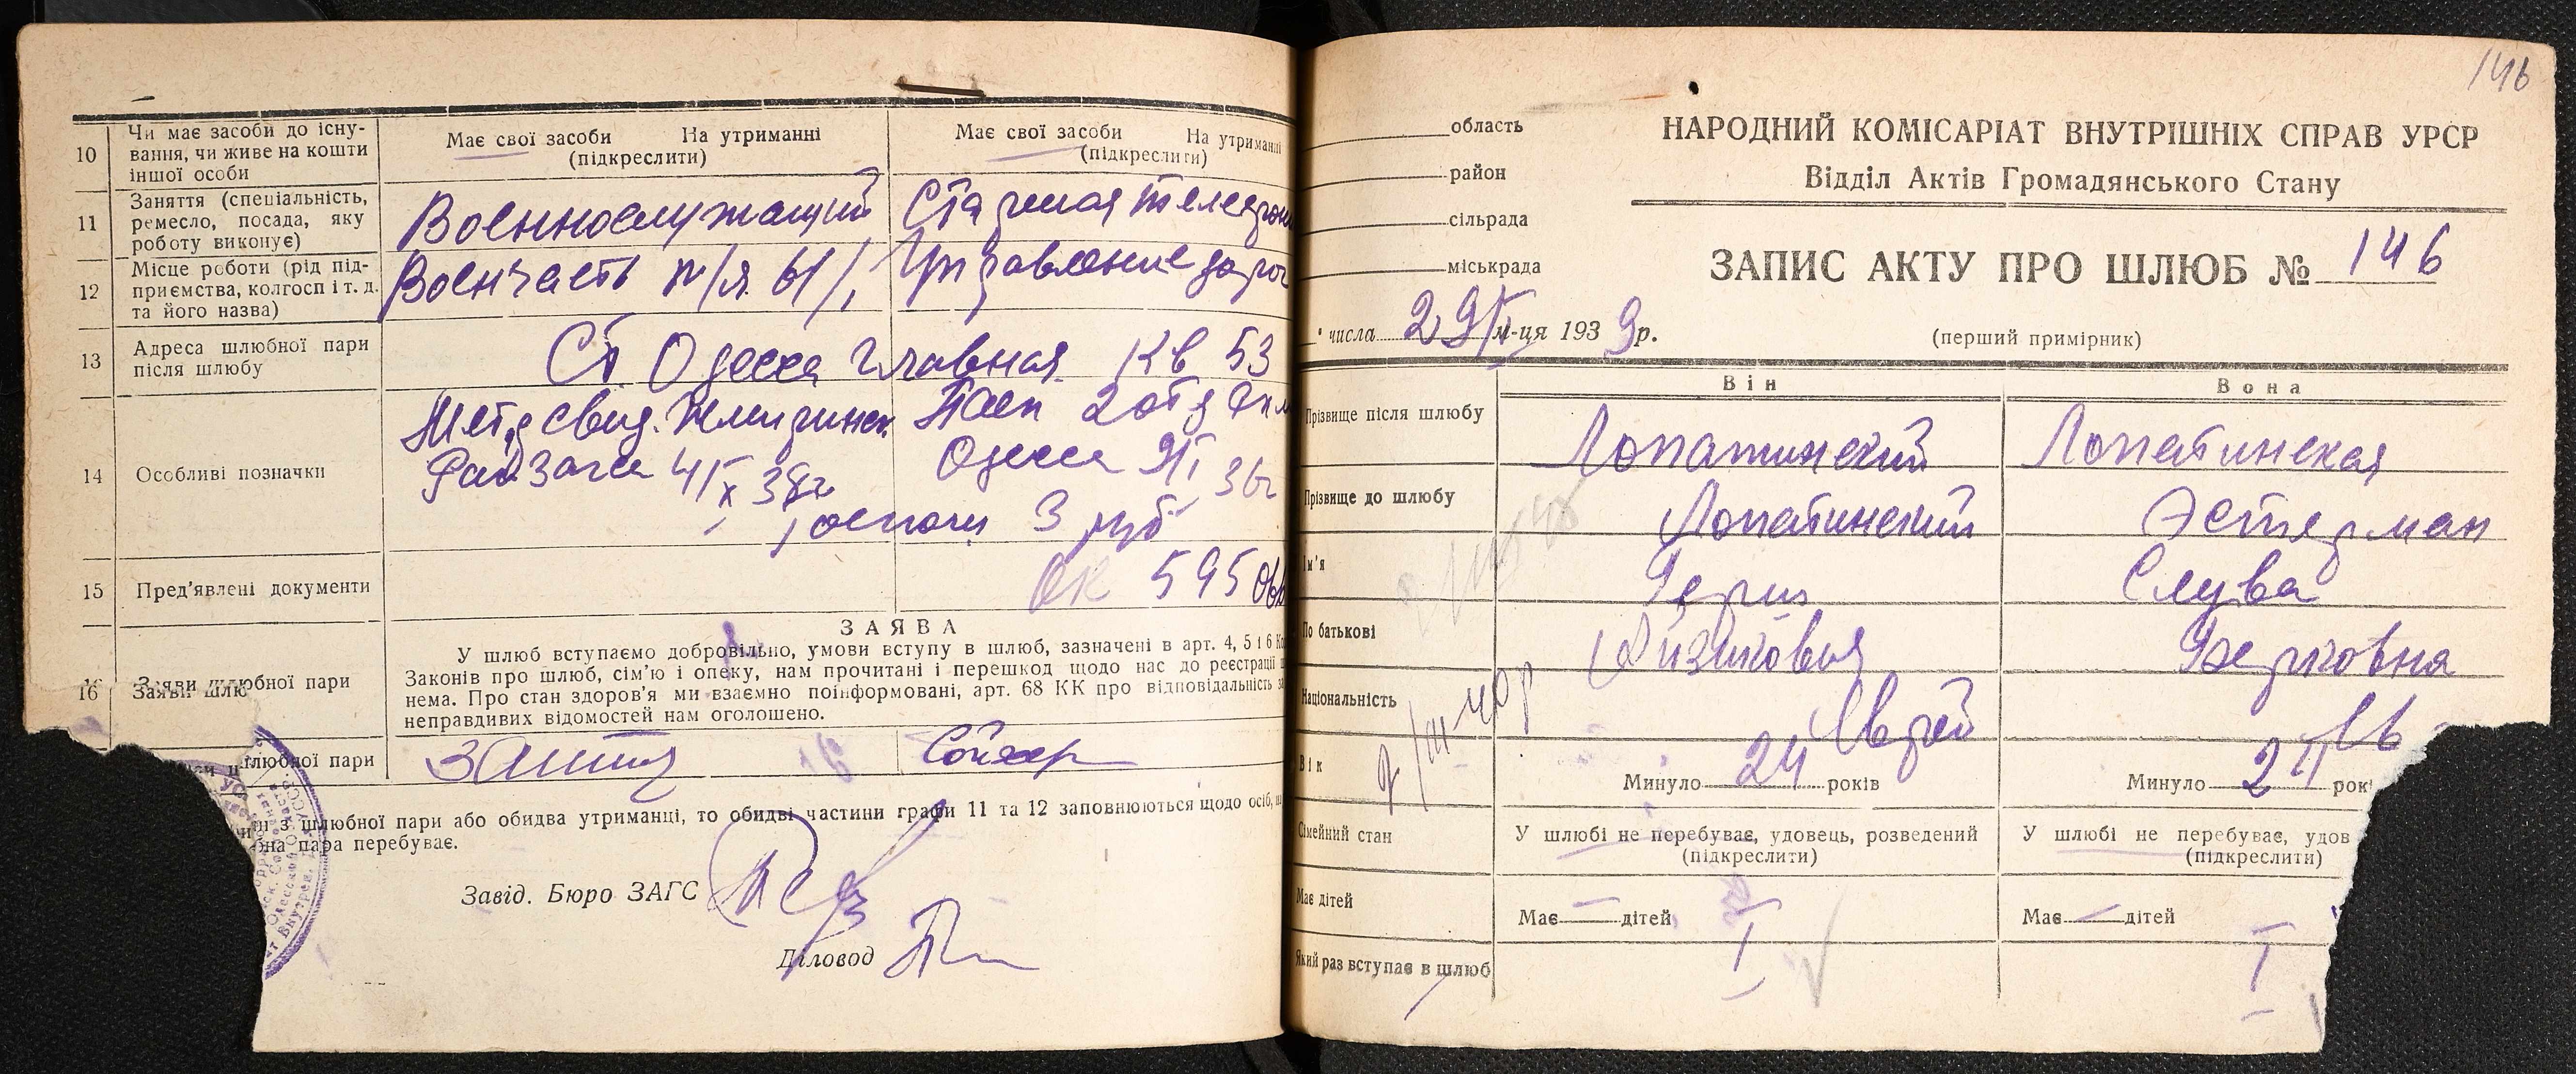 10 Чи має засоби до існу-
вання, чи живе на кошти
іншої особи
Має свої засоби На утриманні
(підкреслити)
Має свої засоби На утриманні
(підкреслити)
11 Заняття (спеціальність,
ремесло, посада, яку
роботу виконує)
Военнослужащий
Старшая телефон
12 Місце роботи (рід під-
приємства, колгосп і т. д.
та його назва)
Военчасть п/я 61/1
Управление дорог
13 Адреса шлюбної пари
після шлюбу
Ст. Одесса Главная Кв 53
14 Особливі позначки
Метр свид. Жмеринск.
Райзагса 4/X 38г
Пасп 2 отд
Одесса 9/I 36г
госпошл 3 руб
15 Пред'явлені документи
595
16 Заяви шлюбної пари
ЗАЯВА
У шлюб вступаємо добровільно, умови вступу в шлюб, зазначені в арт. 4, 5 і 6
Законів про шлюб, сім'ю і опеку, нам прочитані і перешкод щодо нас до реєстрації
нема. Про стан здоров'я ми взаємно поінформовані, арт. 68 КК про відповідальність за
неправдивих відомостей нам оголошено.
шлюбної пари
з шлюбної пари або обидва утриманці, то обидві частини графи 11 та 12 заповнюються щодо осіб,
пара перебуває.
Завід. Бюро ЗАГС
Діловод
146
область
район
сільрада
міськрада
числа 29 м-ця 1939р.
НАРОДНИЙ КОМІСАРІАТ ВНУТРІШНІХ СПРАВ УРСР
Відділ Актів Громадянського Стану
ЗАПИС АКТУ ПРО ШЛЮБ № 146
(перший примірник)
Він Вона
Прізвище після шлюбу Лопатинский Лопатинская
Прізвище до шлюбу Лопатинский Эстерман
Ім'я Герш Слува
По батькові Айзикович Гершовна
Національність Еврей Ев
Вік Минуло 24 років Минуло 2 рок
Сімейний стан У шлюбі не перебуває, удовець, розведений
(підкреслити)
У шлюбі не перебуває, удов
(підкреслити)
Має дітей Має — дітей Має — дітей
Який раз вступає в шлюб I I